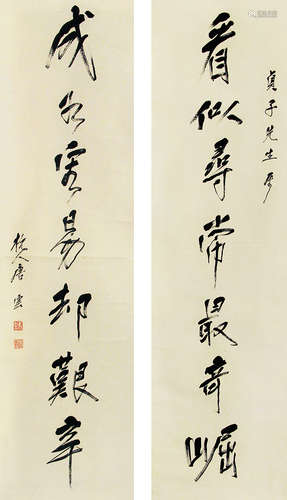 貞子先生屬
看似尋常最奇崛
成如容易却艱辛
杭人唐雲